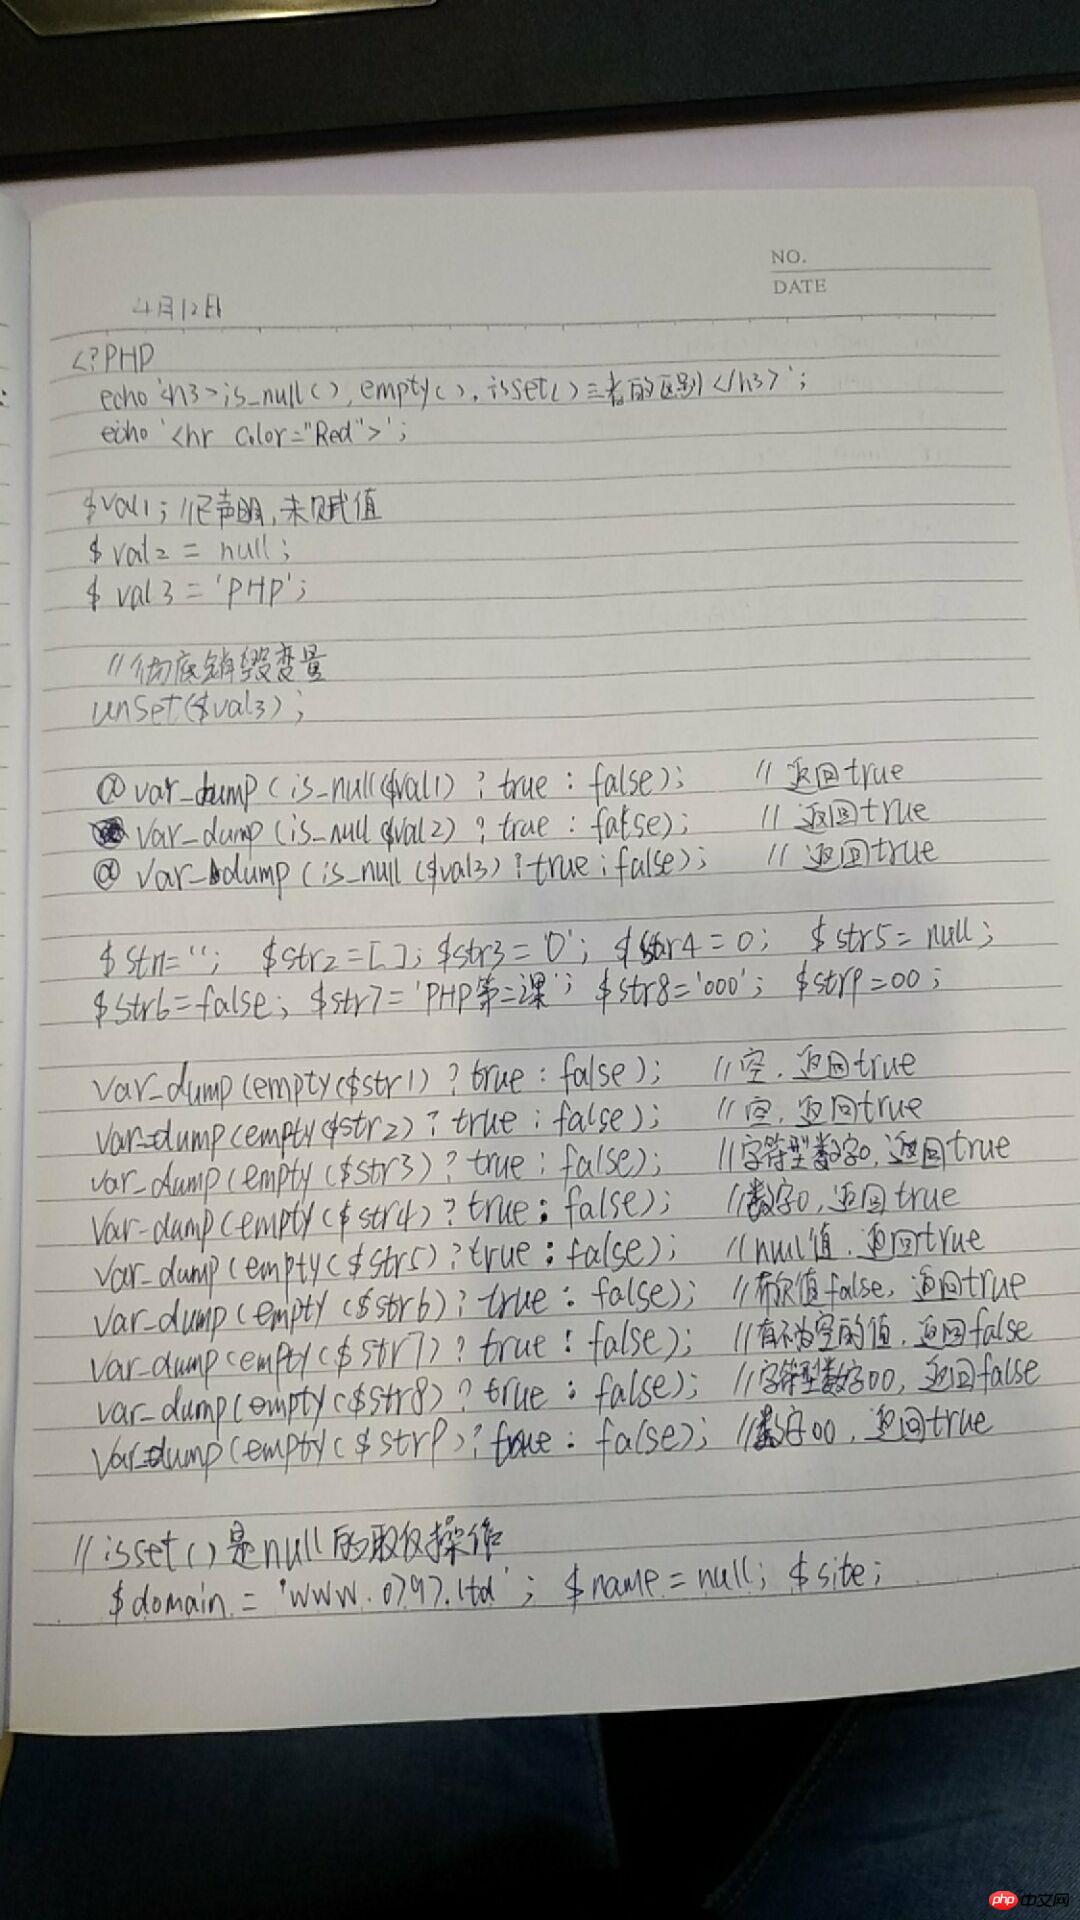 NO.
DATE
4月12日
<?PHP
echo '<h3>is_null(), empty(), isset()三者的区别</h3>';
echo '<hr color="Red">';
$val1; //已声明,未赋值
$val2 = null;
$val3 = 'PHP';
//彻底销毁变量
unset($val3);
@var_dump(is_null($val1) ? true : false); //返回true
var_dump(is_null $val2) ? true : false); //返回true
@ var_dump(is_null($val3) ? true : false); //返回true
$str1=''; $str2=[]; $str3='0'; $str4=0; $str5=null;
$str6=false; $str7='PHP第二课'; $str8='000'; $str9=00;
var_dump(empty($str1) ? true : false); //空,返回true
var_dump(empty($str2) ? true : false); //空,返回true
var_dump(empty($str3) ? true : false); //字符型数字0,返回true
var_dump(empty($str4) ? true : false); //数字0,返回true
var_dump(empty($str5) ? true : false); //null值,返回true
var_dump(empty($str6) ? true : false); //布尔值false,返回true
var_dump(empty($str7) ? true : false); //有不为空的值,返回false
var_dump(empty($str8) ? true : false); //字符型数字00,返回false
var_dump(empty($str9) ? true : false); //数字00,返回true
//isset()是null的取反操作
$domain = 'www.0797.ltd'; $name=null; $site;
php中文网